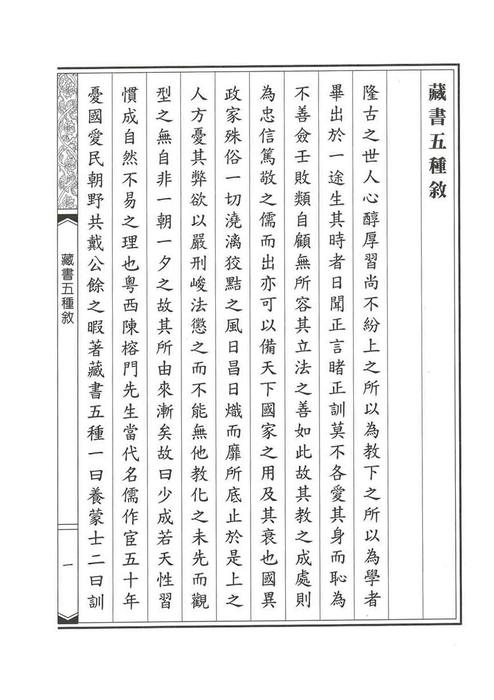 藏書五種敘
隆古之世人心醇厚習尚不紛上之所以為教下之所以為學者
畢出於一途生其時者日聞正言睹正訓莫不各愛其身而恥為
不善僉壬敗類自顧無所容其立法之善如此故其教之成處則
為忠信篤敬之儒而出亦可以備天下國家之用及其衰也國異
政家殊俗一切澆漓狡黠之風日昌日熾而靡所底止於是上之
人方憂其弊欲以嚴刑峻法懲之而不能無他教化之未先而觀
型之無自非一朝一夕之故其所由來漸矣故曰少成若天性習
慣成自然不易之理也粵西陳榕門先生當代名儒作宦五十年
憂國愛民朝野共戴公餘之暇著藏書五種一曰養蒙士二曰訓
藏書五種敘
一